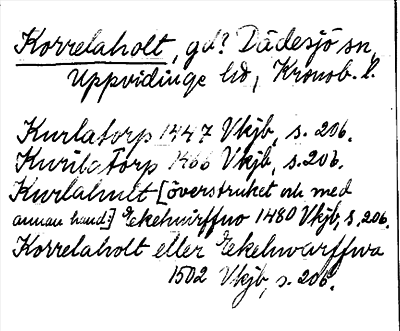 Korrelaholt, gd? Dädesjö sn,
Uppvidinge hd, Kronob. l.
Kurlatorp 1447 Vkjb, s. 206.
Kurilatorp 1466 Vkjb, s. 206.
Kurlahult [överstruket och med
annan hand:] Ekehvirffuo 1480 Vkjb, s. 206.
Korrelaholt eller Ekehwarffwa
1502 Vkjb, s. 206.